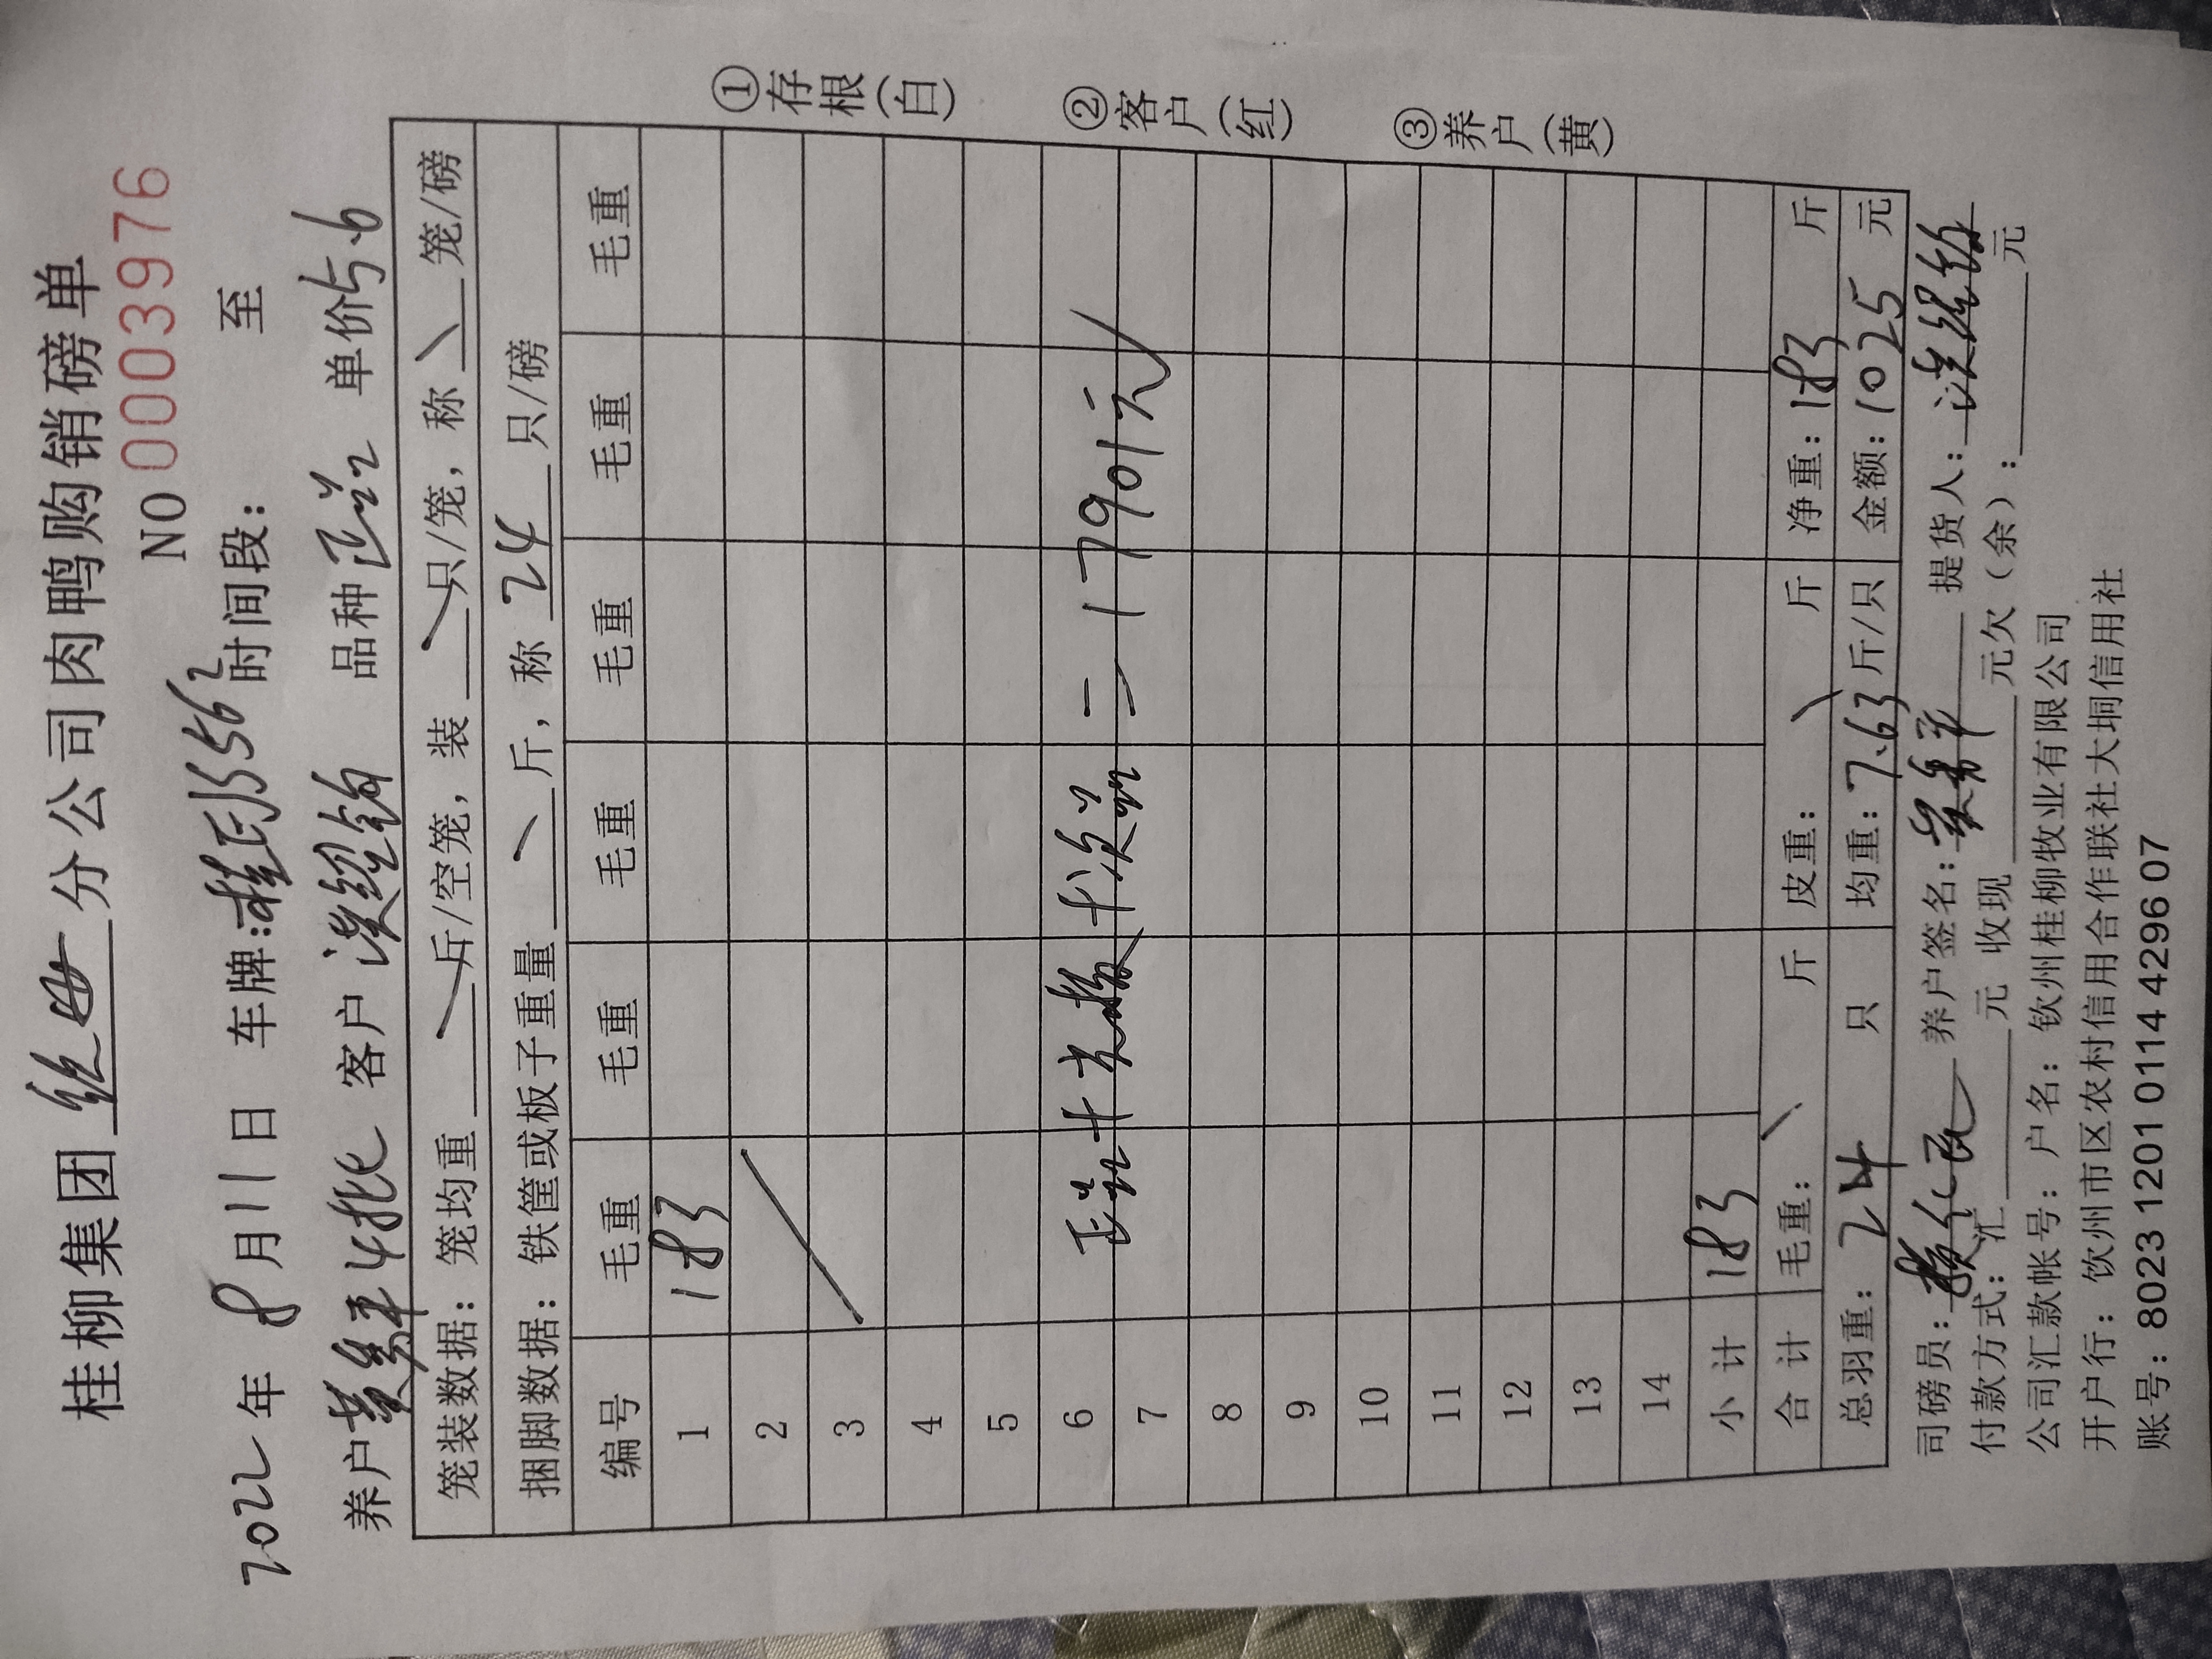 桂柳集团 分公司肉鸭购销磅单
NO 0003976
2022年 8月11日 车牌: 时间段: 至
养户 4批 客户 品种 单价5.6
笼装数据: 笼均重 斤/空笼, 装 只/笼, 称 笼/磅
捆脚数据: 铁筐或板子重量 斤, 称 24 只/磅
编号 毛重 毛重 毛重 毛重 毛重 毛重
1 183
2
3
4
5
6
7
= 17901元
8
9
10
11
12
13
14
小计 183
合计 毛重: 斤 皮重: 斤 净重: 183 斤
总羽重: 24 只 均重: 7.63 斤/只 金额: 1025 元
司磅员: 养户签名: 提货人:
付款方式: 汇 元 收现 元欠(余): 元
公司汇款帐号: 户名: 钦州桂柳牧业有限公司
开户行: 钦州市区农村信用合作联社大垌信用社
账号: 8023 1201 0114 4296 07
①存根(白)
②客户(红)
③养户(黄)